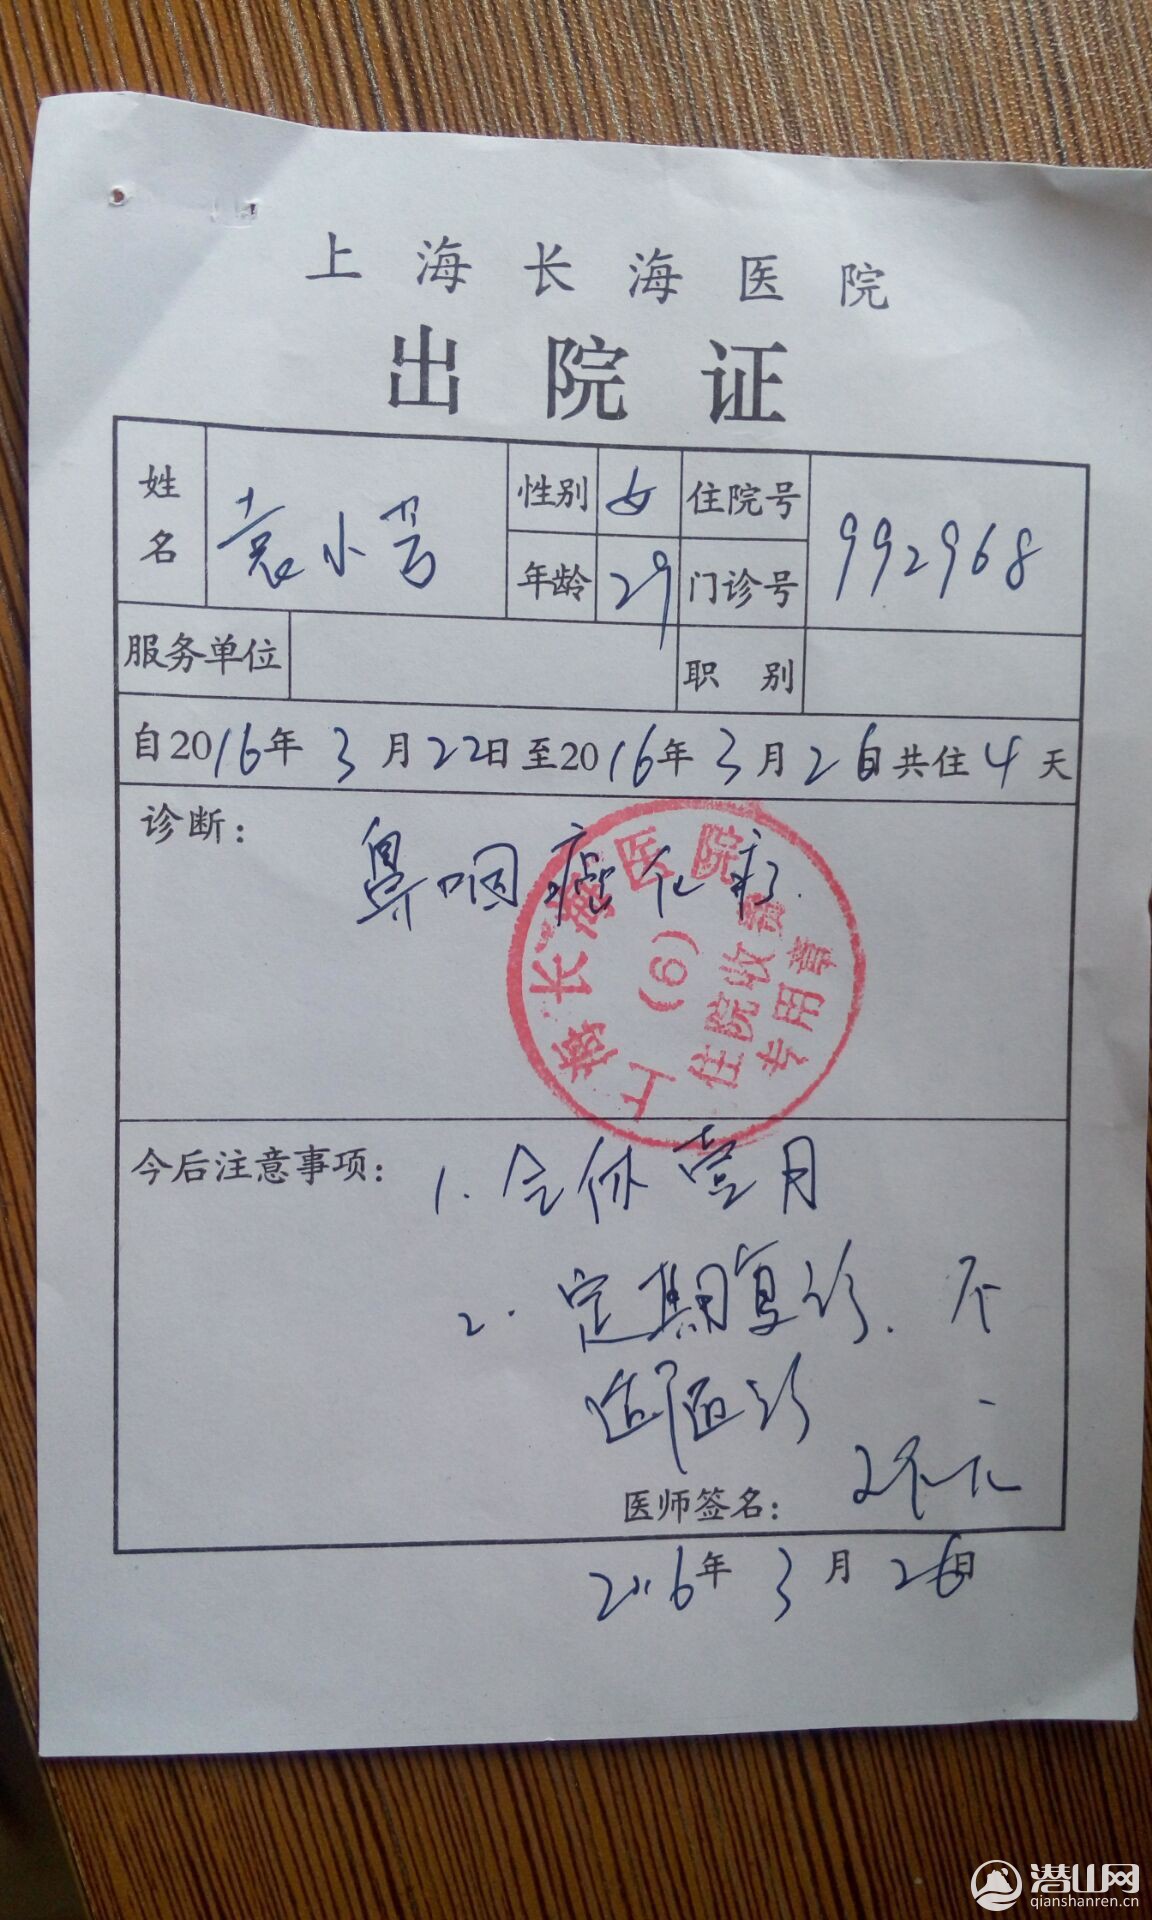 上海长海医院
出院证
姓名 袁小芳 性别 女 住院号
年龄 29 门诊号 992968
服务单位 职别
自2016年3月22日至2016年3月26日共住4天
诊断: 鼻咽癌化疗.
上海长海医院
(6)
住院收费
专用章
今后注意事项: 1. 全休壹月
2. 定期复诊. 不
适随诊
医师签名:
2016年3月26日
潜山网
qianshanren.cn